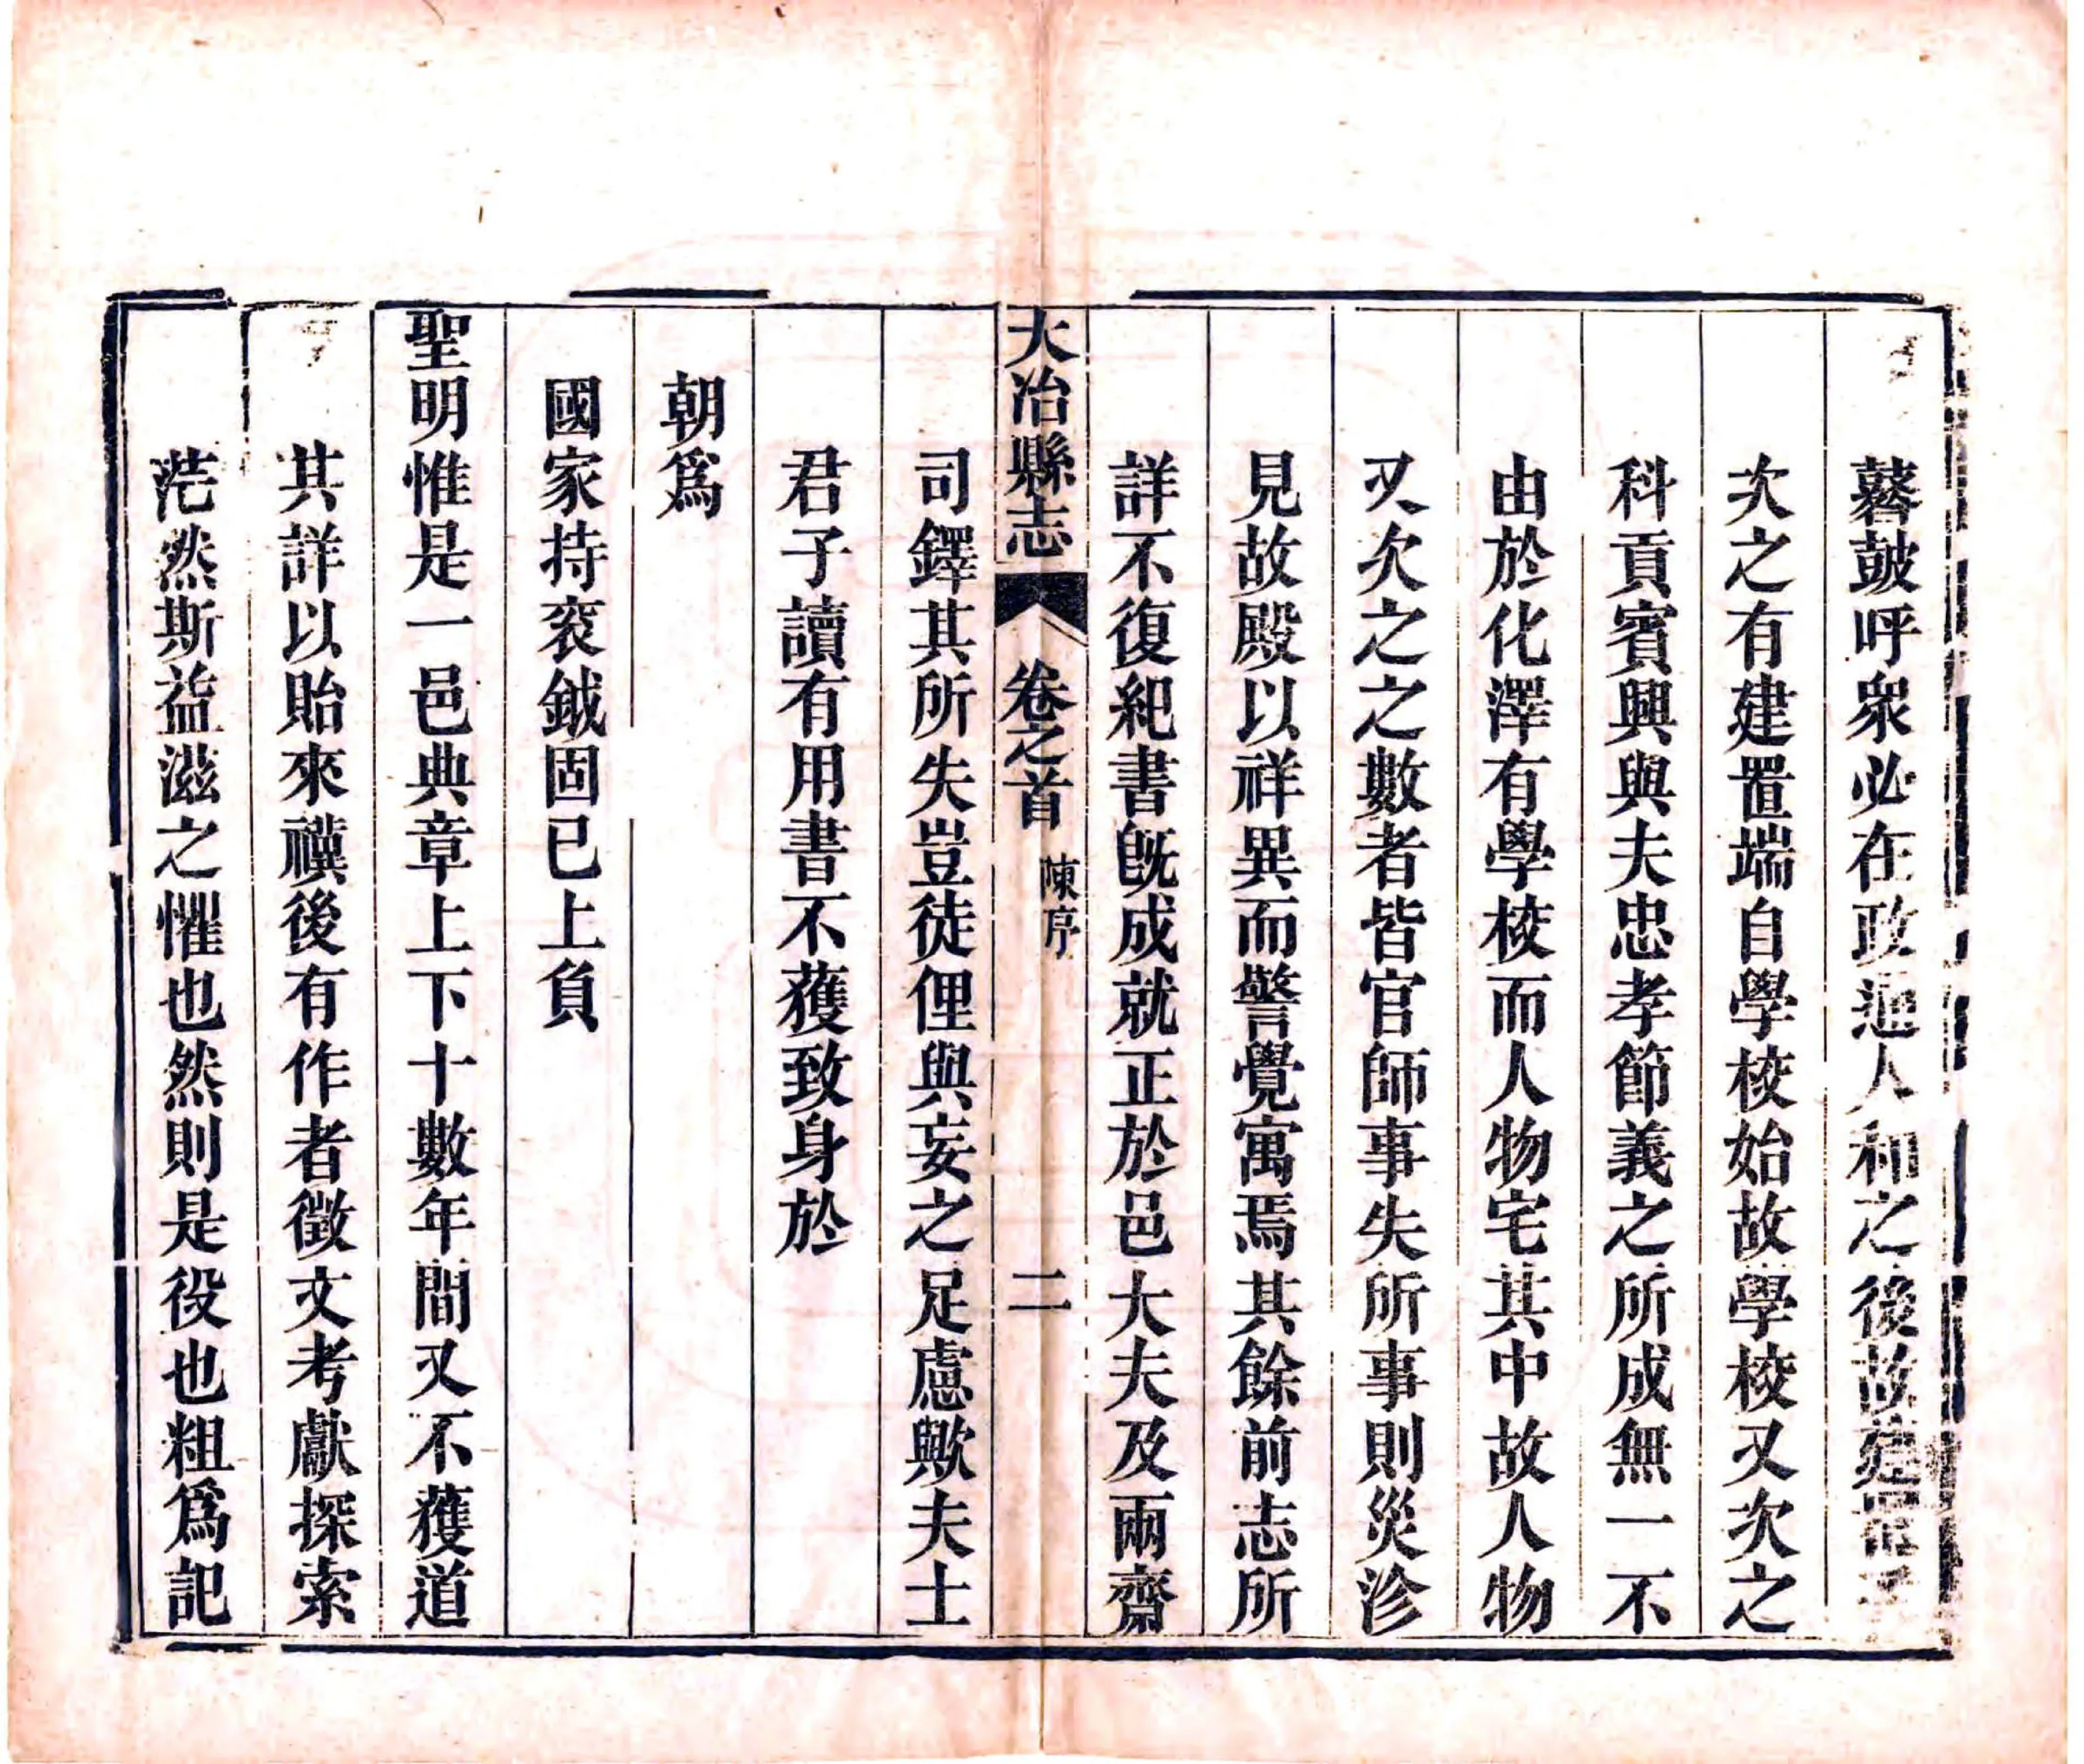 鼛鼓呼衆必在政通人和之後故建置
次之有建置端自學校始故學校又次之
科貢賓興與夫忠孝節義之所成無一不
由於化澤有學校而人物宅其中故人物
又次之之數者皆官師事失所事則災沴
見故殿以祥異而警覺寓焉其餘前志所
詳不復紀書旣成就正於邑大夫及兩齋
大冶縣志 卷之首 陳序 二
司鐸其所失豈徒俚與妄之足慮歟夫士
君子讀有用書不獲致身於
朝爲
國家持衮鉞固已上負
聖明惟是一邑典章上下十數年間又不獲道
其詳以貽來禩後有作者徵文考獻探索
茫然斯益滋之懼也然則是役也粗爲記